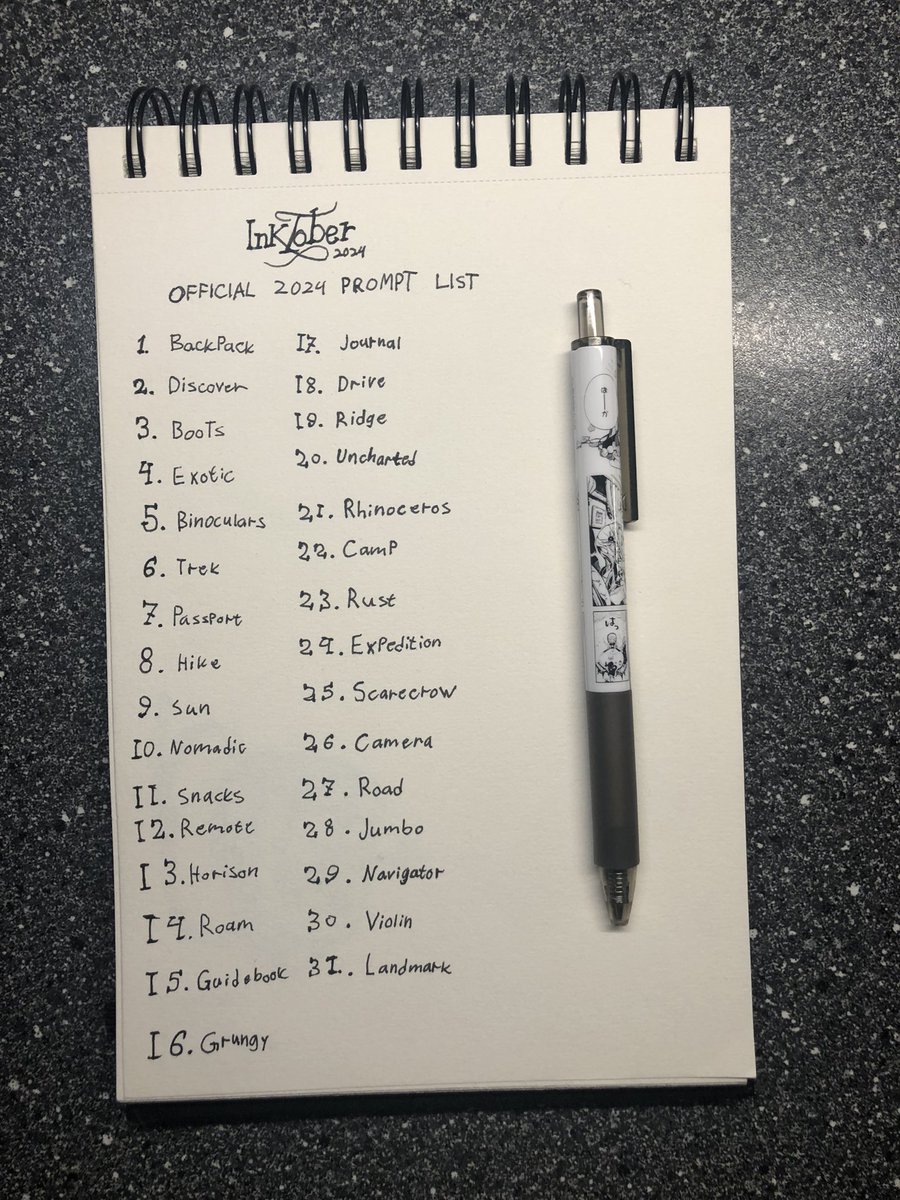 InkTober
2024
OFFICIAL 2024 PROMPT LIST
1. BackPack
2. Discover
3. BooTs
4. Exotic
5. Binoculars
6. Trek
7. Passport
8. Hike
9. Sun
10. Nomadic
11. Snacks
12. Remote
13. Horison
14. Roam
15. Guidebook
16. Grungy
17. Journal
18. Drive
19. Ridge
20. Uncharted
21. Rhinoceros
22. CamP
23. Rust
24. ExPedition
25. Scarecrow
26. Camera
27. Road
28. Jumbo
29. Navigator
30. Violin
31. Landmark
はっ